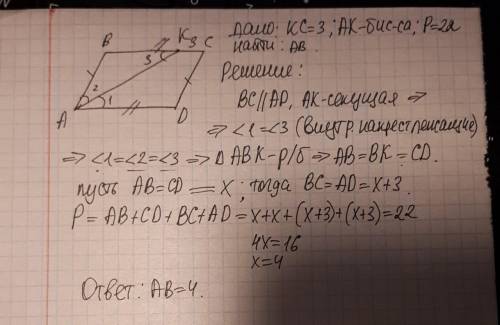 Дано: KC=3; AK-бис-са; P=22
Найти: AB.
B K 3 C
3
2
1
A D
Решение:
BC∥AD, AK-секущая ⇒
⇒ ∠1=∠3 (Внутр. накрестлежащие)
⇒ ∠1=∠2=∠3 ⇒ ΔABK-р/б ⇒ AB=BK=CD.
пусть AB=CD=x; тогда BC=AD=x+3.
P=AB+CD+BC+AD=x+x+(x+3)+(x+3)=22
4x=16
x=4
Ответ: AB=4.